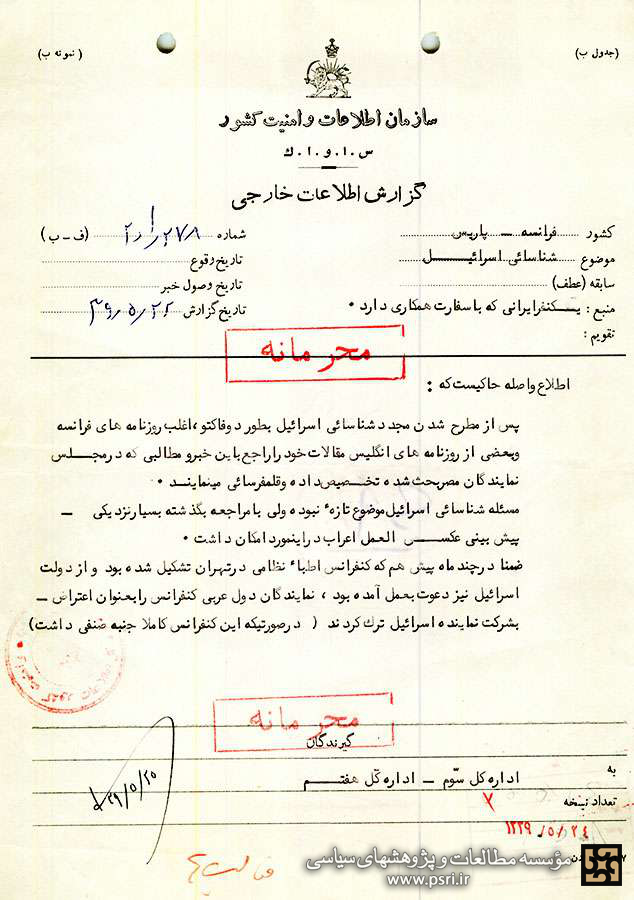 (جدول ب)
(نمونه ب)
سازمان اطلاعات و امنیت کشور
س.ا.و.ا.ك
گزارش اطلاعات خارجی
کشور فرانسه ــ پاریس
شماره ۲۷۸ (ف ـ ب)
موضوع شناسائی اسرائیل
تاریخ وقوع
سابقه (عطف)
تاریخ وصول خبر
منبع : یکنفر ایرانی که با سفارت همکاری دارد ۰
تاریخ گزارش ۳۹/۵/۲۲
تقویم :
محرمانه
اطلاع واصله حاکیست که :
پس از مطرح شدن مجدد شناسائی اسرائیل بطور دوفاکتو، اغلب روزنامه های فرانسه
وبعضی از روزنامه های انگلیس مقالات خود را راجع باین خبر و مطالبی که در مجلس
نمایندگان مصر بحث شده تخصیص داده و قلمفرسائی مینمایند ۰
مسئله شناسائی اسرائیل موضوع تازهٔ نبوده ولی با مراجعه بگذشته بسیار نزدیکی ــ
پیش بینی عکس العمل اعراب در اینمورد امکان داشت ۰
ضمنا در چند ماه پیش هم که کنفرانس اطباء نظامی در تهران تشکیل شده بود و از دولت
اسرائیل نیز دعوت بعمل آمده بود ، نمایندگان دول عربی کنفرانس را بعنوان اعتراض ــ
بشرکت نماینده اسرائیل ترك کردند ( در صورتیکه این کنفرانس کاملا جنبه صنفی داشت)
محرمانه
گیرندگان
به اداره کل سوّم ــ اداره کل هفتم
تعداد نسخه ۲
۱۳۳۹/۵/۲٤
۳۹/۵/۲۵
مؤسسه مطالعات و پژوهشهای سیاسی
www.psri.ir